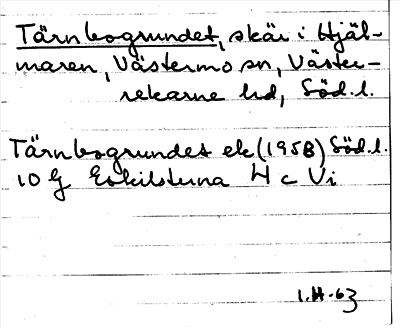 Tärnbogrundet, skär i Hjäl-
maren, Västermo sn, Väster-
rekarne hd, Söd.l.
Tärnbogrundet ek (1958) Söd.l.
10 G Eskilstuna H c Vi
1.H-63